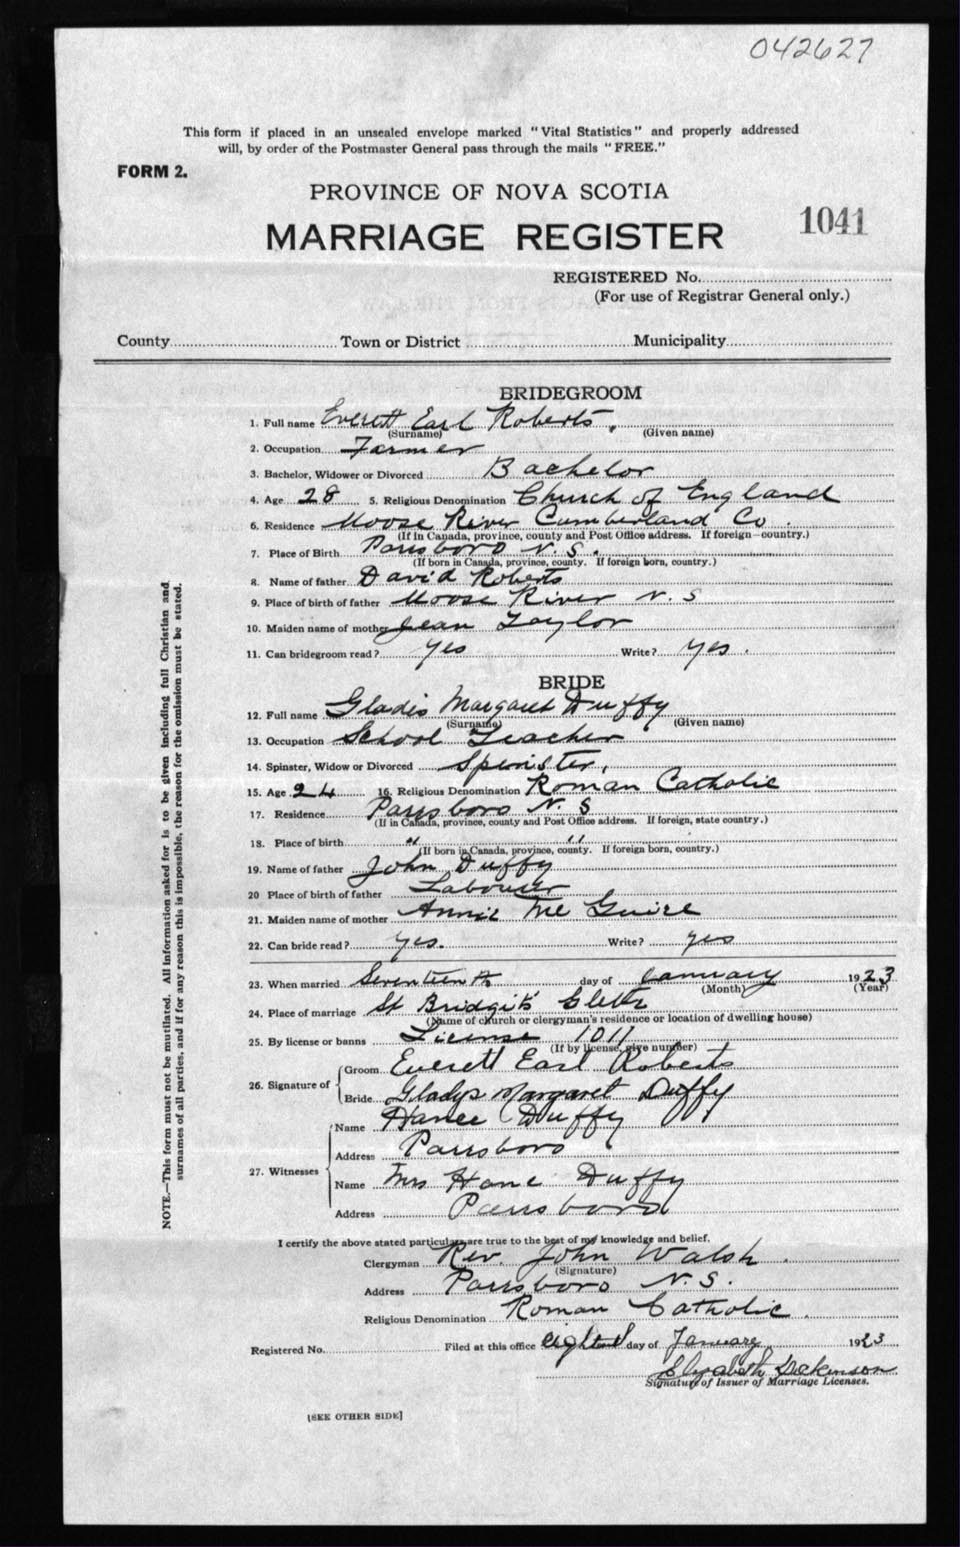 042627
This form if placed in an unsealed envelope marked "Vital Statistics" and properly addressed
will, by order of the Postmaster General pass through the mails "FREE."
FORM 2.
PROVINCE OF NOVA SCOTIA
MARRIAGE REGISTER 1041
REGISTERED No.
(For use of Registrar General only.)
County Town or District Municipality
BRIDEGROOM
1. Full name Everett Earl Roberts
(Surname) (Given name)
2. Occupation Farmer
3. Bachelor, Widower or Divorced Bachelor
4. Age 28 5. Religious Denomination Church of England
6. Residence Moose River Cumberland Co.
(If in Canada, province, county and Post Office address. If foreign—country.)
7. Place of Birth Parrsboro N.S.
(If born in Canada, province, county. If foreign born, country.)
8. Name of father David Roberts
9. Place of birth of father Moose River N.S
10. Maiden name of mother Jean Taylor
11. Can bridegroom read? Yes Write? Yes.
BRIDE
12. Full name Gladis Margaret Duffy
(Surname) (Given name)
13. Occupation School Teacher
14. Spinster, Widow or Divorced Spinster.
15. Age 24 16. Religious Denomination Roman Catholic
17. Residence Parrsboro N.S
(If in Canada, province, county and Post Office address. If foreign, state country.)
18. Place of birth " "
(If born in Canada, province, county. If foreign born, country.)
19. Name of father John Duffy
20 Place of birth of father Labourer
21. Maiden name of mother Annie Mc Guire
22. Can bride read? Yes. Write? Yes
23. When married Seventeenth day of January 1923
(Month) (Year)
24. Place of marriage St Bridgit's
(Name of church or clergyman's residence or location of dwelling house)
25. By license or banns License 1011
(If by license, give number)
26. Signature of Groom Everett Earl Roberts
Bride Gladys Margaret Duffy
27. Witnesses Name Duffy
Address Parrsboro
Name Mrs Duffy
Address Parrsboro
I certify the above stated particulars are true to the best of my knowledge and belief.
Clergyman Rev. John Walsh.
(Signature)
Address Parrsboro N.S.
Religious Denomination Roman Catholic.
Registered No. Filed at this office day of January 1923
Elizabeth Dickinson
Signature of Issuer of Marriage Licenses.
[SEE OTHER SIDE]
NOTE.—This form must not be mutilated. All information asked for is to be given including full Christian and
surnames of all parties, and if for any reason this is impossible, the reason for the omission must be stated.